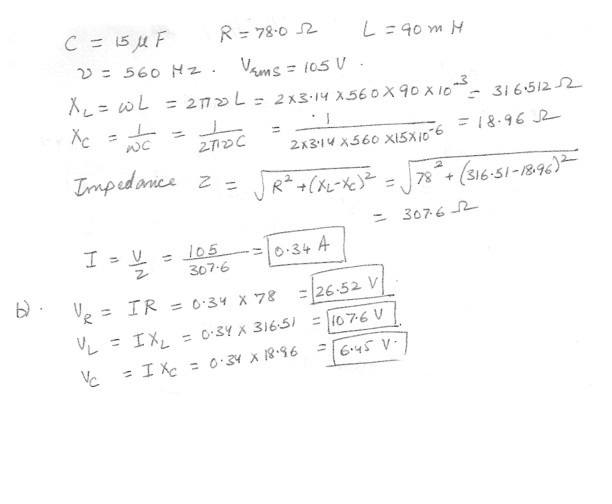 C = 15 μF R = 78.0 Ω L = 90 m H
ν = 560 Hz. Vrms = 105 V.
XL = ωL = 2πνL = 2×3.14×560×90×10⁻³ = 316.512 Ω
Xc = 1/ωC = 1/2πνC = 1/2×3.14×560×15×10⁻⁶ = 18.96 Ω
Impedance Z = √R²+(XL-Xc)² = √78²+(316.51-18.96)²
= 307.6 Ω
I = V/Z = 105/307.6 = 0.34 A
b). VR = IR = 0.34 × 78 = 26.52 V
VL = IXL = 0.34 × 316.51 = 107.6 V
Vc = IXc = 0.34 × 18.96 = 6.45 V.